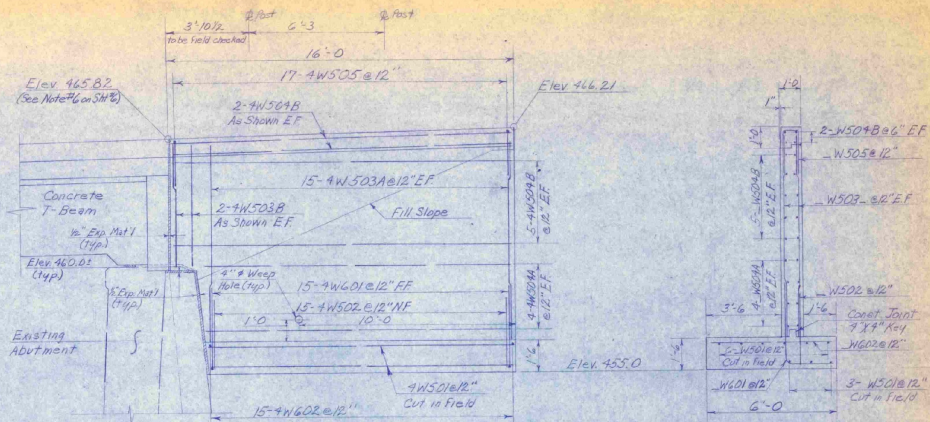 ℄ Post
℄ Post
3'-10½
6'-3
to be field checked
16'-0
17-4W505@12"
Elev. 465.82
(See Note #6 on Sht %)
Elev. 466.21
2-4W504B
As Shown E.F.
15-4W503A@12"E.F.
Concrete
T-Beam
2-4W503B
As Shown E.F.
Fill Slope
5-4W504B
@12" E.F.
½" Exp. Mat'l
(typ.)
Elev. 460.0±
(typ.)
4" ⌀ Weep
Hole (typ.)
Exp. Mat'l
(typ.)
15-4W601@12" FF
15-4W502@12"NF
4-4W504A
@12" E.F.
1'-0
10'-0
Existing
Abutment
1'-6
1'-6
Elev. 455.0
4W501@12"
Cut in Field
15-4W602@12"
1'-0
1"
1'-0
2-W504B@6" E.F.
W505@12"
5-W504B
@12" E.F.
W503-@12"E.F.
4-W504A
@12" E.F.
W502@12"
3'-6
1'-6
Const. Joint
4"X4" Key
W602@12"
W501@12"
Cut in Field
W601@12"
3-W501@12"
Cut in Field
6'-0